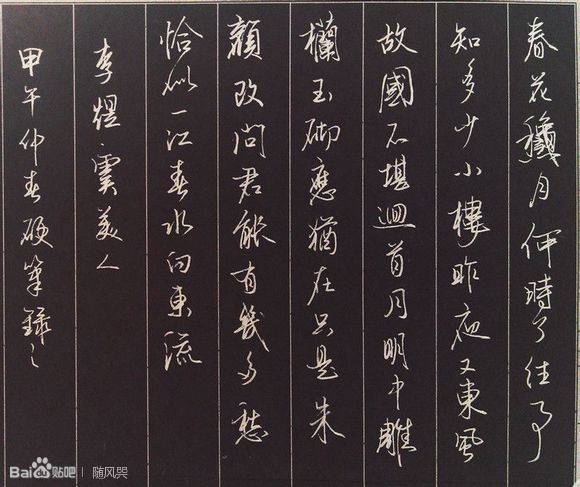 春花龝月何時了往事
知多少小樓昨夜又東風
故國不堪迴首月明中雕
欄玉砌應猶在只是朱
顏改問君能有幾多愁
恰似一江春水向東流
李煜·虞美人
甲午仲春硬筆錄之
Bai贴吧 | 随风